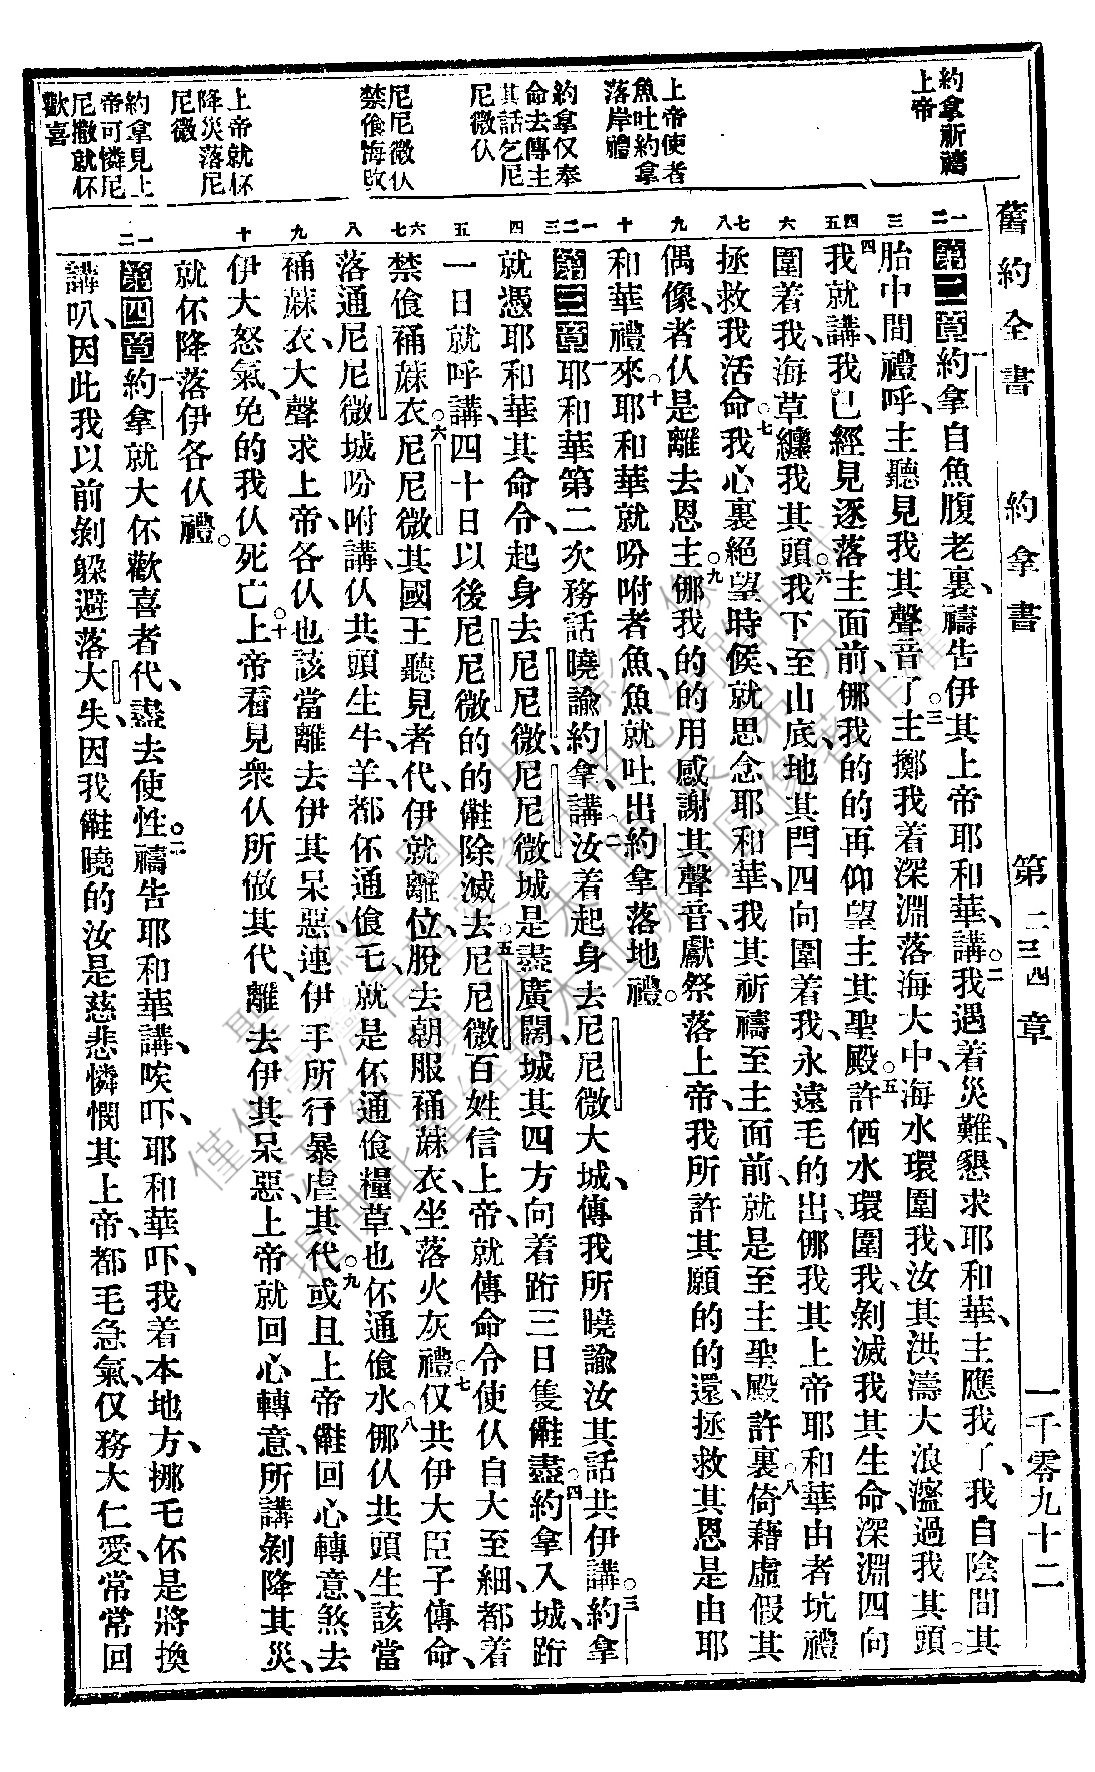 舊約全書 約拿書 第二三四章 一千零九十二
約拿祈禱
上帝
上帝使者
魚吐約拿
落岸禮
約拿仅奉
命去傳主
其話乞尼
尼微仈
尼尼微仈
禁飧悔改
上帝就伓
降災落尼
尼微
約拿見上
帝可憐尼
尼撒就伓
歡喜
一二 三 四五 六 七八 九 十 一二三 四 五 六七 八 九 十 一二
第二章約拿自魚腹老裏、禱告伊其上帝耶和華、講、○二我遇着災難、懇求耶和華、主應我了、我自陰間其
胎中間禮呼、主聽見我其聲音了。三主擲我着深淵落海大中、海水環圍我、汝其洪濤大浪、瀊過我其頭。
四我就講、我已經見逐落主面前、㑚我的的再仰望主其聖殿。五許價水環圍我、剝滅我其生命、深淵四向
圍着我、海草纏我其頭。六我下至山底、地其門四向圍着我、永遠毛的出、㑚我其上帝耶和華由者坑禮
拯救我活命。七我心裏絕望時候、就思念耶和華、我其祈禱至主面前、就是至主聖殿許裏。八倚藉虛假其
偶像者仈、是離去恩主。九㑚我的的用感謝其聲音、獻祭落上帝、我所許其願的的還、拯救其恩是由耶
和華禮來。十耶和華就吩咐者魚、魚就吐出約拿落地禮。
第三章一耶和華第二次務話曉諭約拿講、二汝着起身去尼尼微大城、傳我所曉諭汝其話共伊講。三約拿
就憑耶和華其命令、起身去尼尼微、尼尼微城是盡廣闊、城其四方向着跲三日隻儺盡。四約拿入城、跲
一日就呼講、四十日以後、尼尼微的的儺除滅去。五尼尼微百姓信上帝、就傳命令使仈自大至細、都着
禁飧補蔴衣。六尼尼微其國王聽見者代、伊就離位、脫去朝服補蔴衣、坐落火灰禮。七仅共伊大臣子傳命、
落通尼尼微城吩咐講、仈共頭生牛羊、都伓通飧乇、就是伓通飧糧草、也伓通飧水。八㑚仈共頭生該當
補蔴衣、大聲求上帝、各仈也該當離去伊其呆惡、連伊手所行暴虐其代。九或且上帝儺回心轉意、煞去
伊大怒氣、免的我仈死亡。十上帝看見衆仈所做其代、離去伊其呆惡、上帝就回心轉意、所講剝降其災、
就伓降落伊各仈禮。
第四章一約拿就大伓歡喜者代、盡去使性。二禱告耶和華講、唉吓、耶和華吓、我着本地方、挪毛伓是將換
講叭、因此我以前剝躲避落大失、因我儺曉的汝是慈悲憐憫其上帝、都毛急氣、仅務大仁愛、常常回